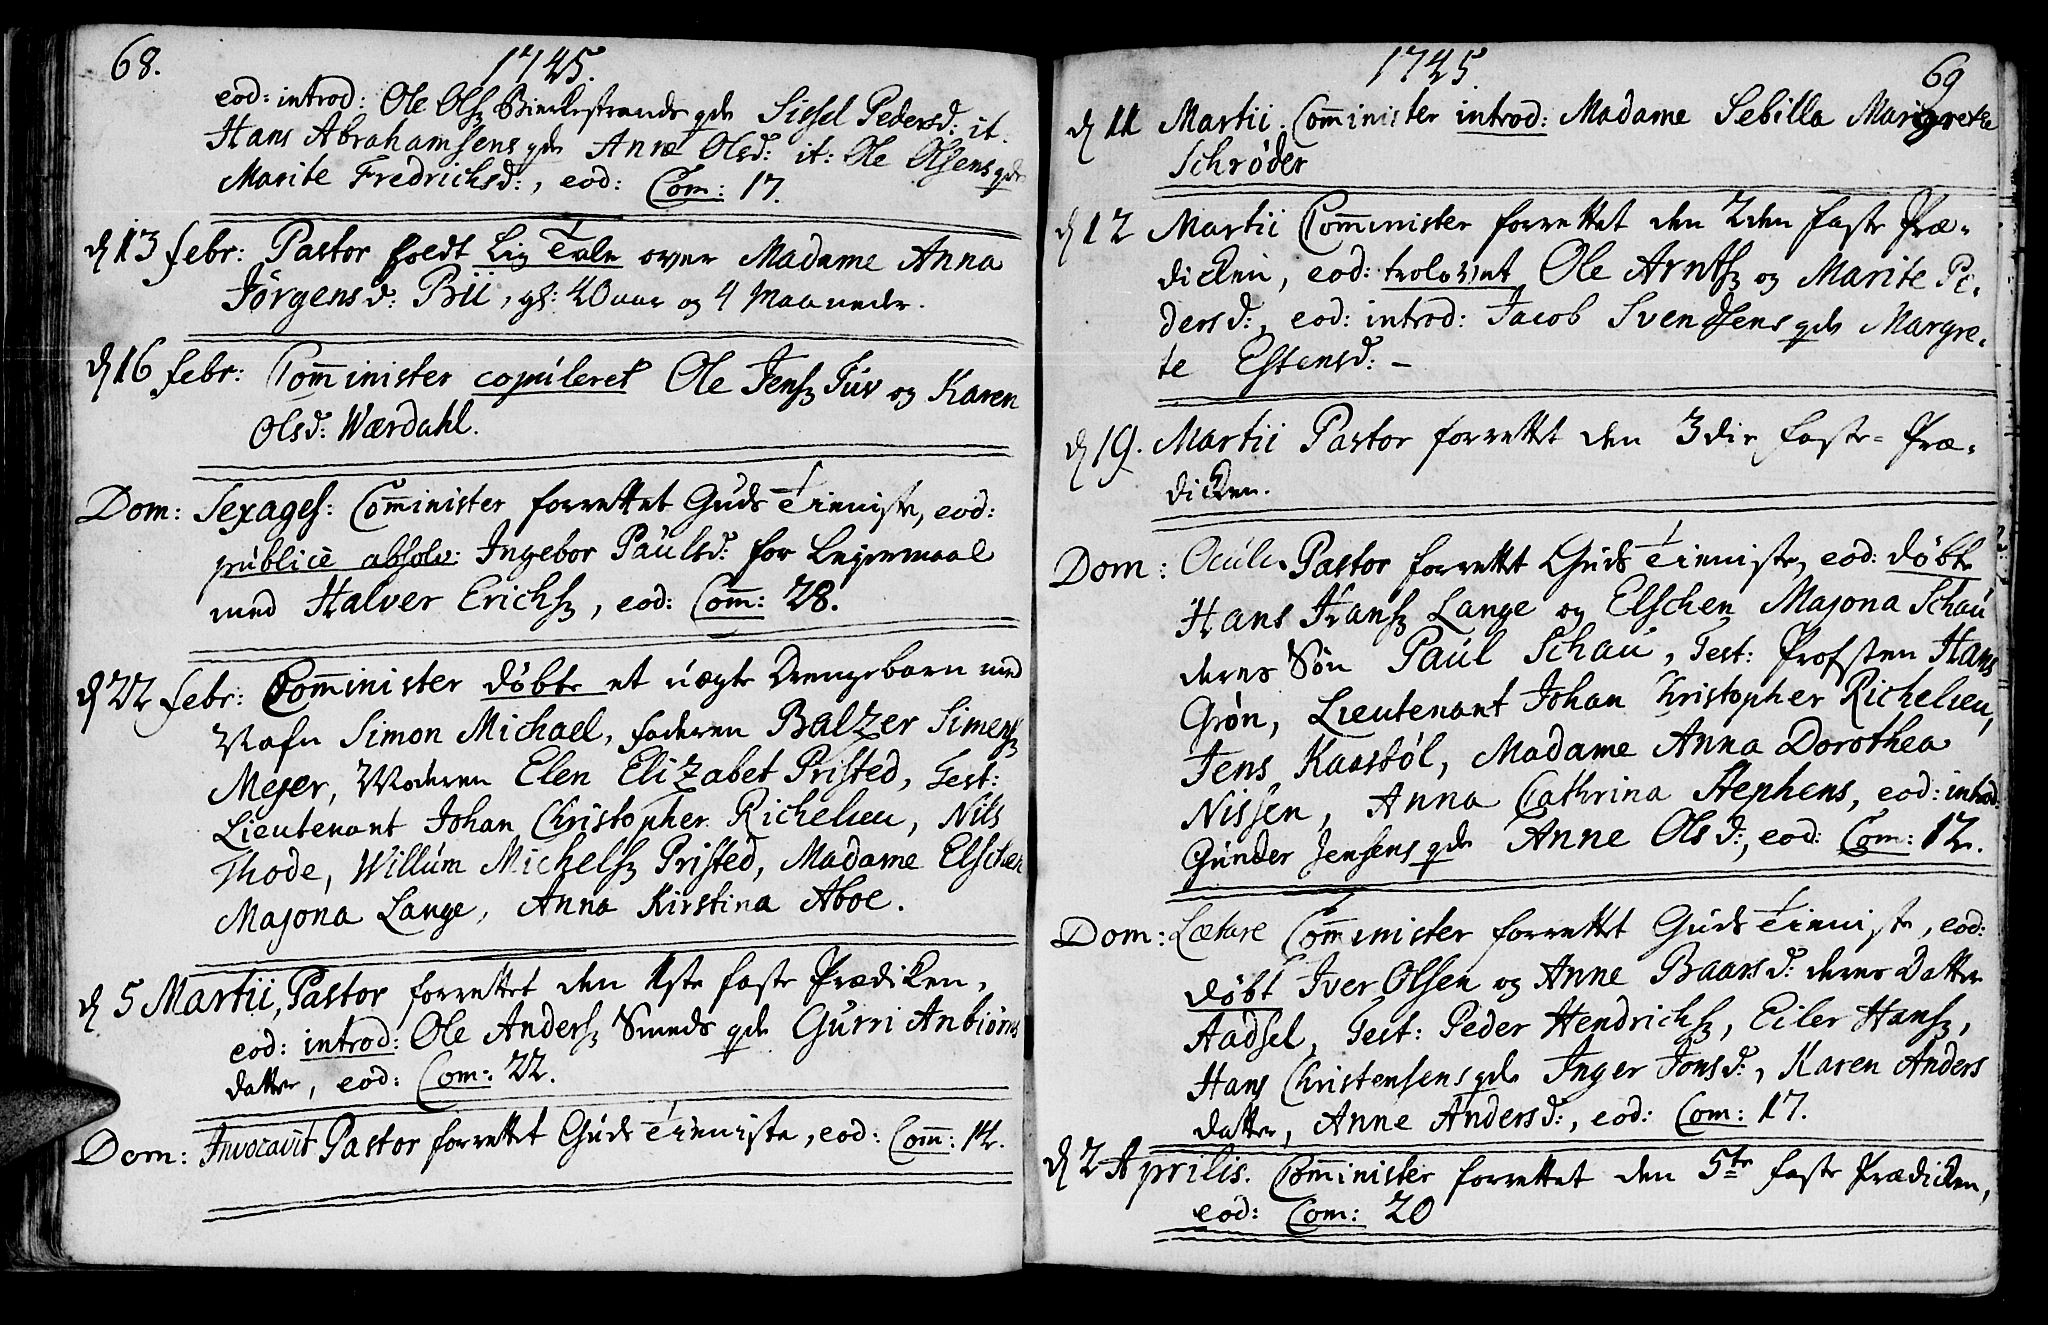 68.
1745.
eod: introd: Ole Ols: qde Sissel Pedersd: it.
Hans Abrahamsens qde Anne Olsd: it: Ole Olsens qde
Marite Fredrichsd:, eod: Com: 17.
d 13 febr: Pastor holdt Lig Tale over Madame Anna
Jørgensd: Bii, gl: 40 aar og 4 Maaneder.
d 16 febr: Comminister copuleret Ole Jens: Tuv og Karen
Olsd: Wærdahl.
Dom: Sexages: Comminister forrettet Guds Tieniste, eod:
publicè absolv: Ingebor Paulsd: for Lejermaal
med Halver Erichs:, eod: Com: 28.
d 22 febr: Comminister døbte et uægte Drengebarn ved
Nafn Simon Michael, faderen Balzer Simens:
Mejer, Moderen Elen Elizabet Pristed, Test:
Lieutenant Johan Christopher Richelieu, Nils
Thode, Willum Michels: Pristed, Madame Elschen
Majona Lange, Anna Kirstina Aboe.
d 5 Martii, Pastor forrettet den 1ste faste Prædiken,
eod: introd: Ole Anders: Smeds qde Gurri Anbiørns
datter, eod: Com: 22.
Dom: Invocavit Pastor forrettet Guds Tieniste, eod: Com: 14.
1745.
69
d 11 Martii. Comminister introd: Madame Sebilla Margrete
Schrøder
d 12 Martii Comminister forrettet den 2den faste Præ-
dicken, eod: trolovet Ole Arnts: og Marite Pe-
dersd:, eod: introd: Jacob Svendsens qde Margre-
te Estensd: -
d 19. Martii Pastor forrettet den 3die faste-Præ-
dicken.
Dom: Oculi Pastor forrettet Guds Tieniste, eod: døbte
Hans Hans: Lange og Elschen Majona Schau
deres Søn Paul Schau, Test: Profsten Hans
Grøn, Lieutenant Johan Christopher Richelieu,
Jens Kaasbøl, Madame Anna Dorothea
Nissen, Anna Cathrina Stephens, eod: introd:
Gunder Jensens qde Anne Olsd:, eod: Com: 12.
Dom: Lætare Comminister forrettet Guds Tieniste, eod:
døbt Iver Olsen og Anne Baarsd: deres Datter
Aadsel, Test: Peder Hendrichs:, Eiler Hans:,
Hans Christensens qde Inger Jonsd:, Karen Anders
datter, Anne Andersd:, eod: Com: 17.
d 2 Aprilis. Comminister forrettet den 5te faste Prædicken,
eod: Com: 20